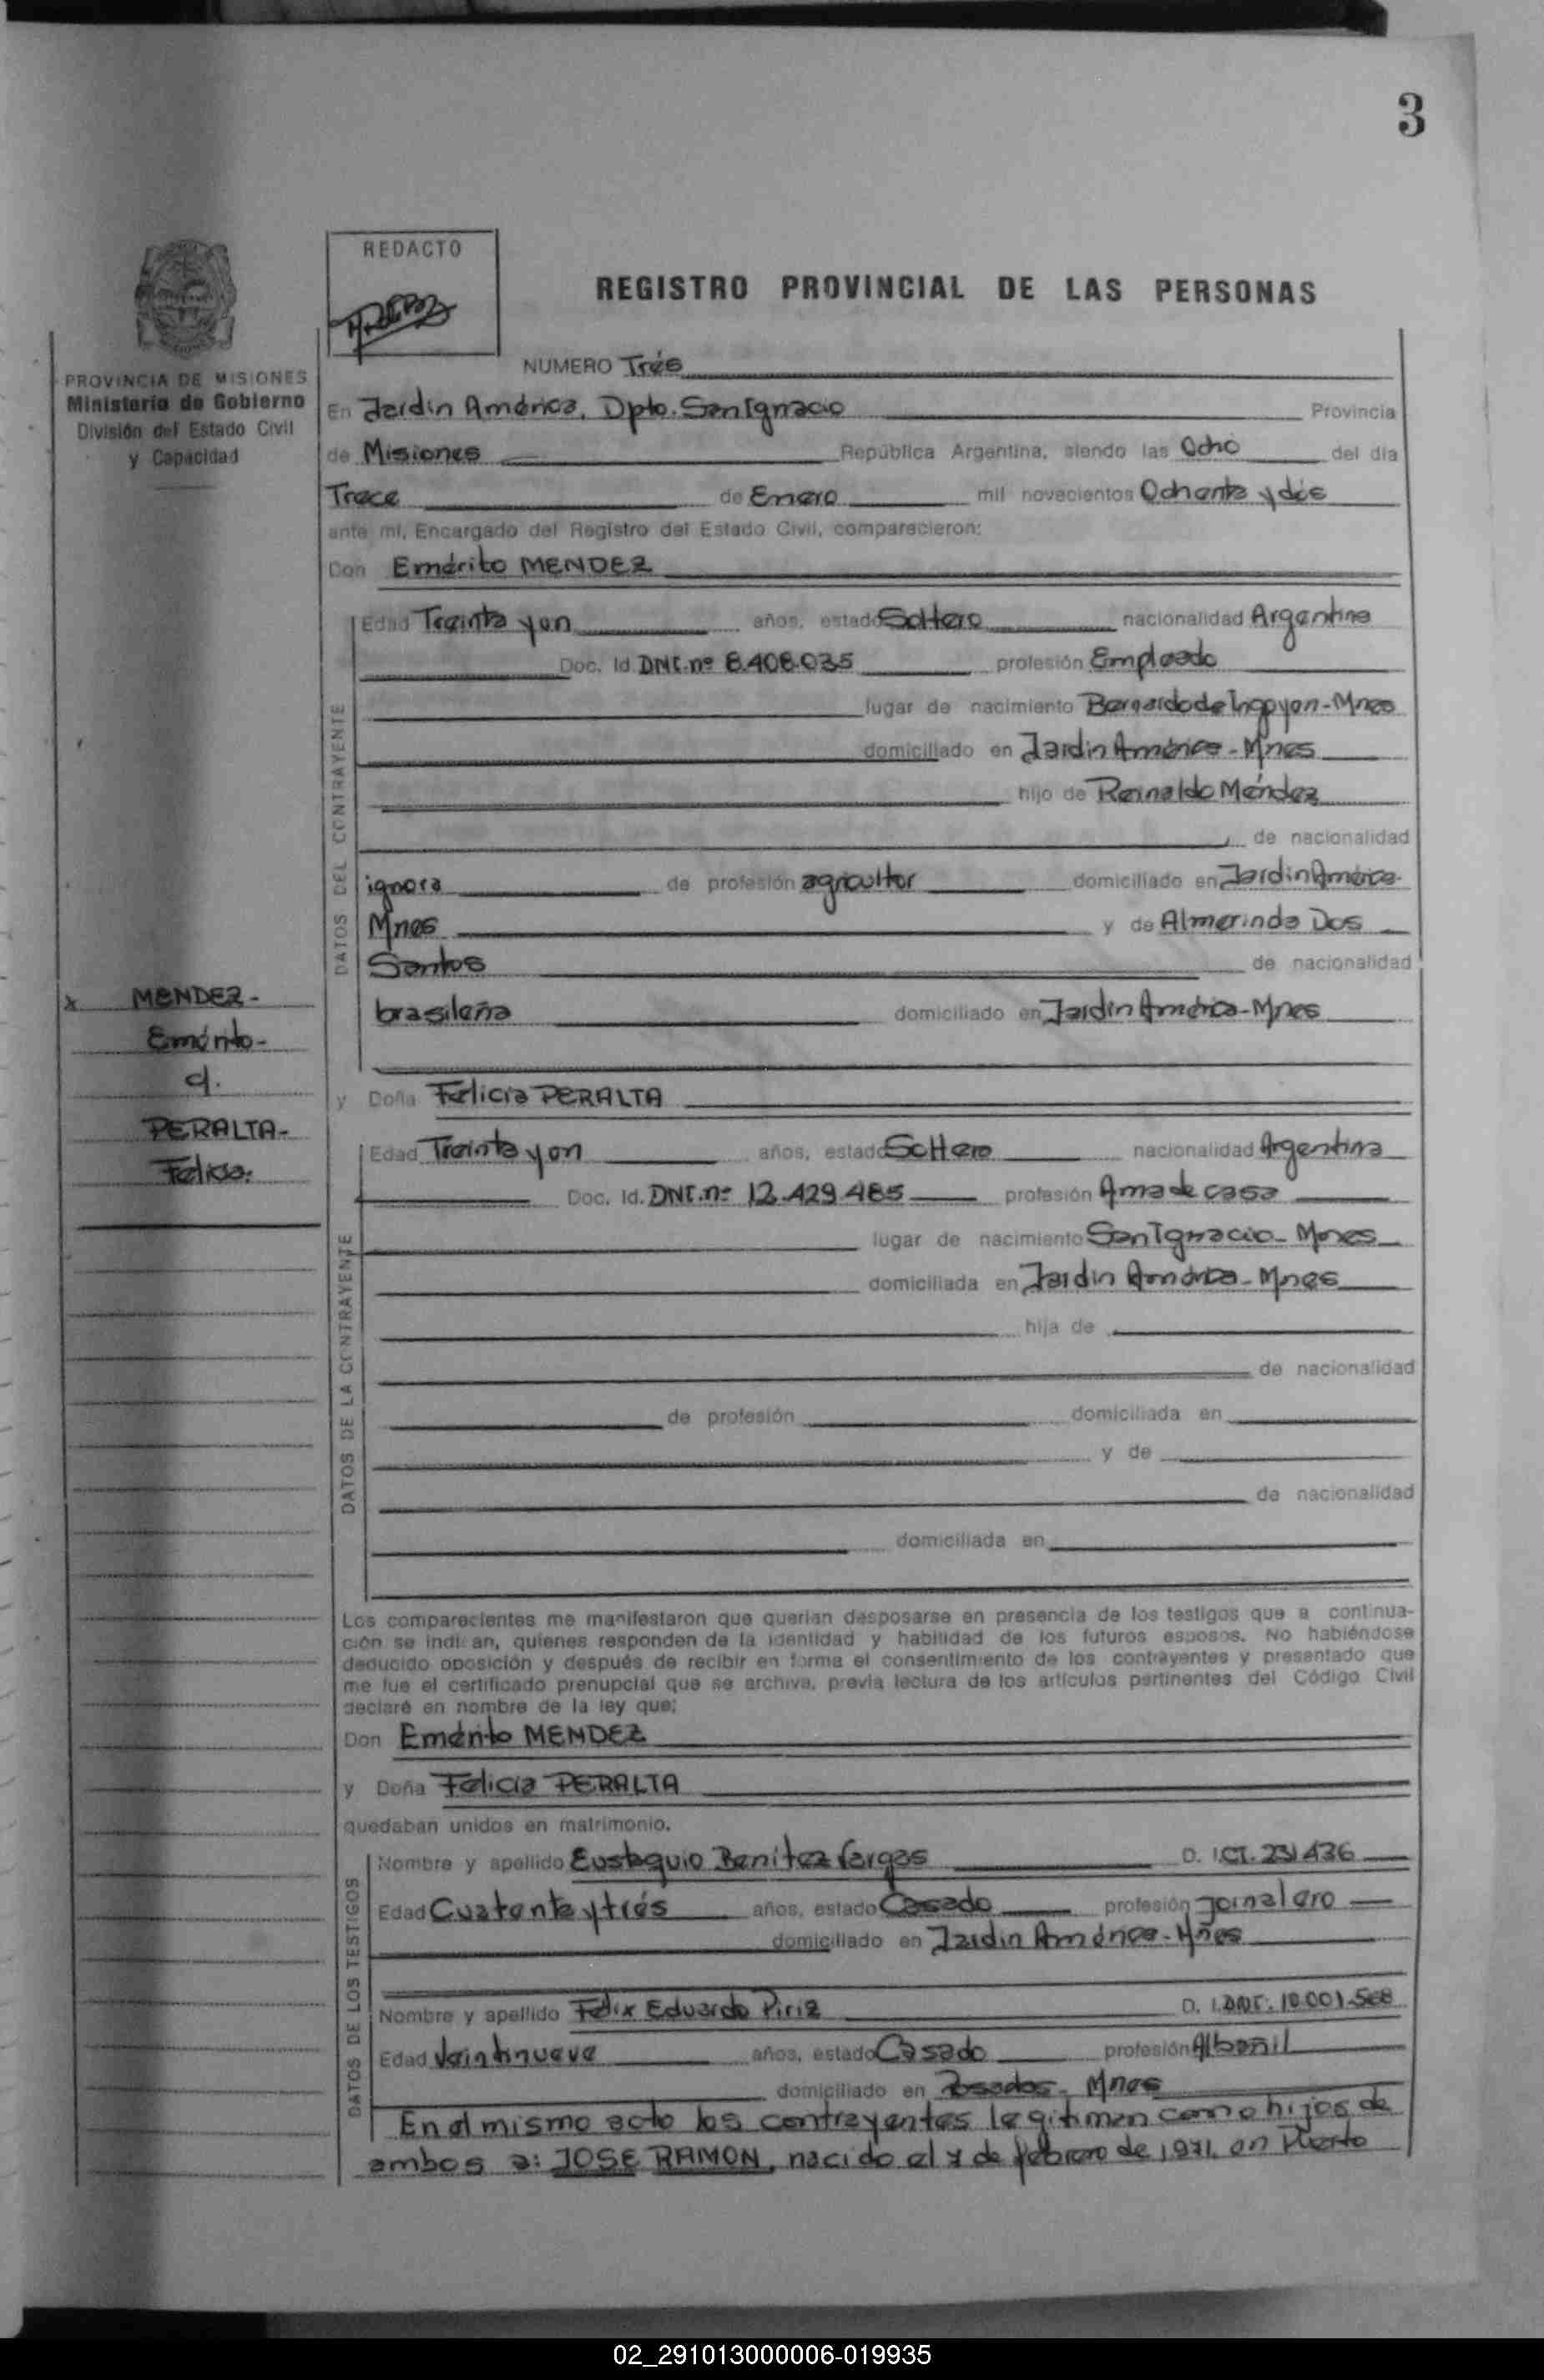 3
REDACTO
REGISTRO PROVINCIAL DE LAS PERSONAS
NUMERO Trés
PROVINCIA DE MISIONES
Ministerio de Gobierno
División del Estado Civil
y Capacidad
En Jardin América, Dpto. San Ignacio Provincia
de Misiones República Argentina, siendo las Ocho del dia
Trece de Enero mil novecientos Ochenta y dós
ante mi, Encargado del Registro del Estado Civil, comparecieron:
Don Emérito MENDEZ
DATOS DEL CONTRAYENTE
Edad Treinta y un años, estado Soltero nacionalidad Argentina
Doc. Id. DNI. nº 8.408.035 profesión Empleado
lugar de nacimiento Bernardo de Irigoyen - Mnes
domiciliado en Jardin América - Mnes
hijo de Reinaldo Méndez
, de nacionalidad
ignora de profesión agricultor domiciliado en Jardin América-
Mnes y de Almerinda Dos
Santos de nacionalidad
brasileña domiciliado en Jardin América - Mnes
x MENDEZ -
Emérito -
c/.
PERALTA -
Felicia.
y Doña Felicia PERALTA
DATOS DE LA CONTRAYENTE
Edad Treinta y un años, estado Soltera nacionalidad Argentina
Doc. Id. DNI. nº 12.429.485 profesión Ama de casa
lugar de nacimiento San Ignacio - Mnes
domiciliada en Jardin América - Mnes
hija de
de nacionalidad
de profesión domiciliada en
y de
de nacionalidad
domiciliada en
Los comparecientes me manifestaron que querían desposarse en presencia de los testigos que a continua-
ción se indican, quienes responden de la identidad y habilidad de los futuros esposos. No habiéndose
deducido oposición y después de recibir en forma el consentimiento de los contrayentes y presentado que
me fue el certificado prenupcial que se archiva, previa lectura de los artículos pertinentes del Código Civil
declaré en nombre de la ley que:
Don Emérito MENDEZ
y Doña Felicia PERALTA
quedaban unidos en matrimonio.
DATOS DE LOS TESTIGOS
Nombre y apellido Eustaquio Benitez Vargas D. I. CI. 231.436
Edad Cuarenta y trés años, estado Casado profesión Jornalero
domiciliado en Jardin América - Mnes
Nombre y apellido Felix Eduardo Piriz D. I. DNI. 10.001.568
Edad Veintinueve años, estado Casado profesión Albañil
domiciliado en Posadas - Mnes
En el mismo acto los contrayentes legitiman como hijos de
ambos a: JOSE RAMON, nacido el de febrero de 1.971, en Puerto
02_291013000006-019935